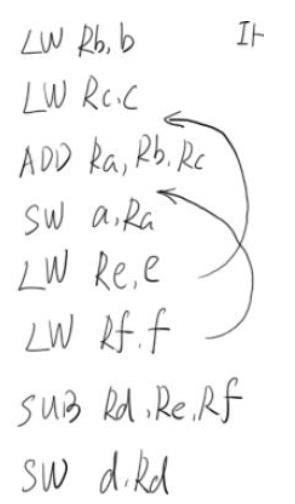 LW Rb,b
LW Rc,c
ADD Ra, Rb, Rc
SW a,Ra
LW Re,e
LW Rf,f
SUB Rd,Re,Rf
SW d,Rd